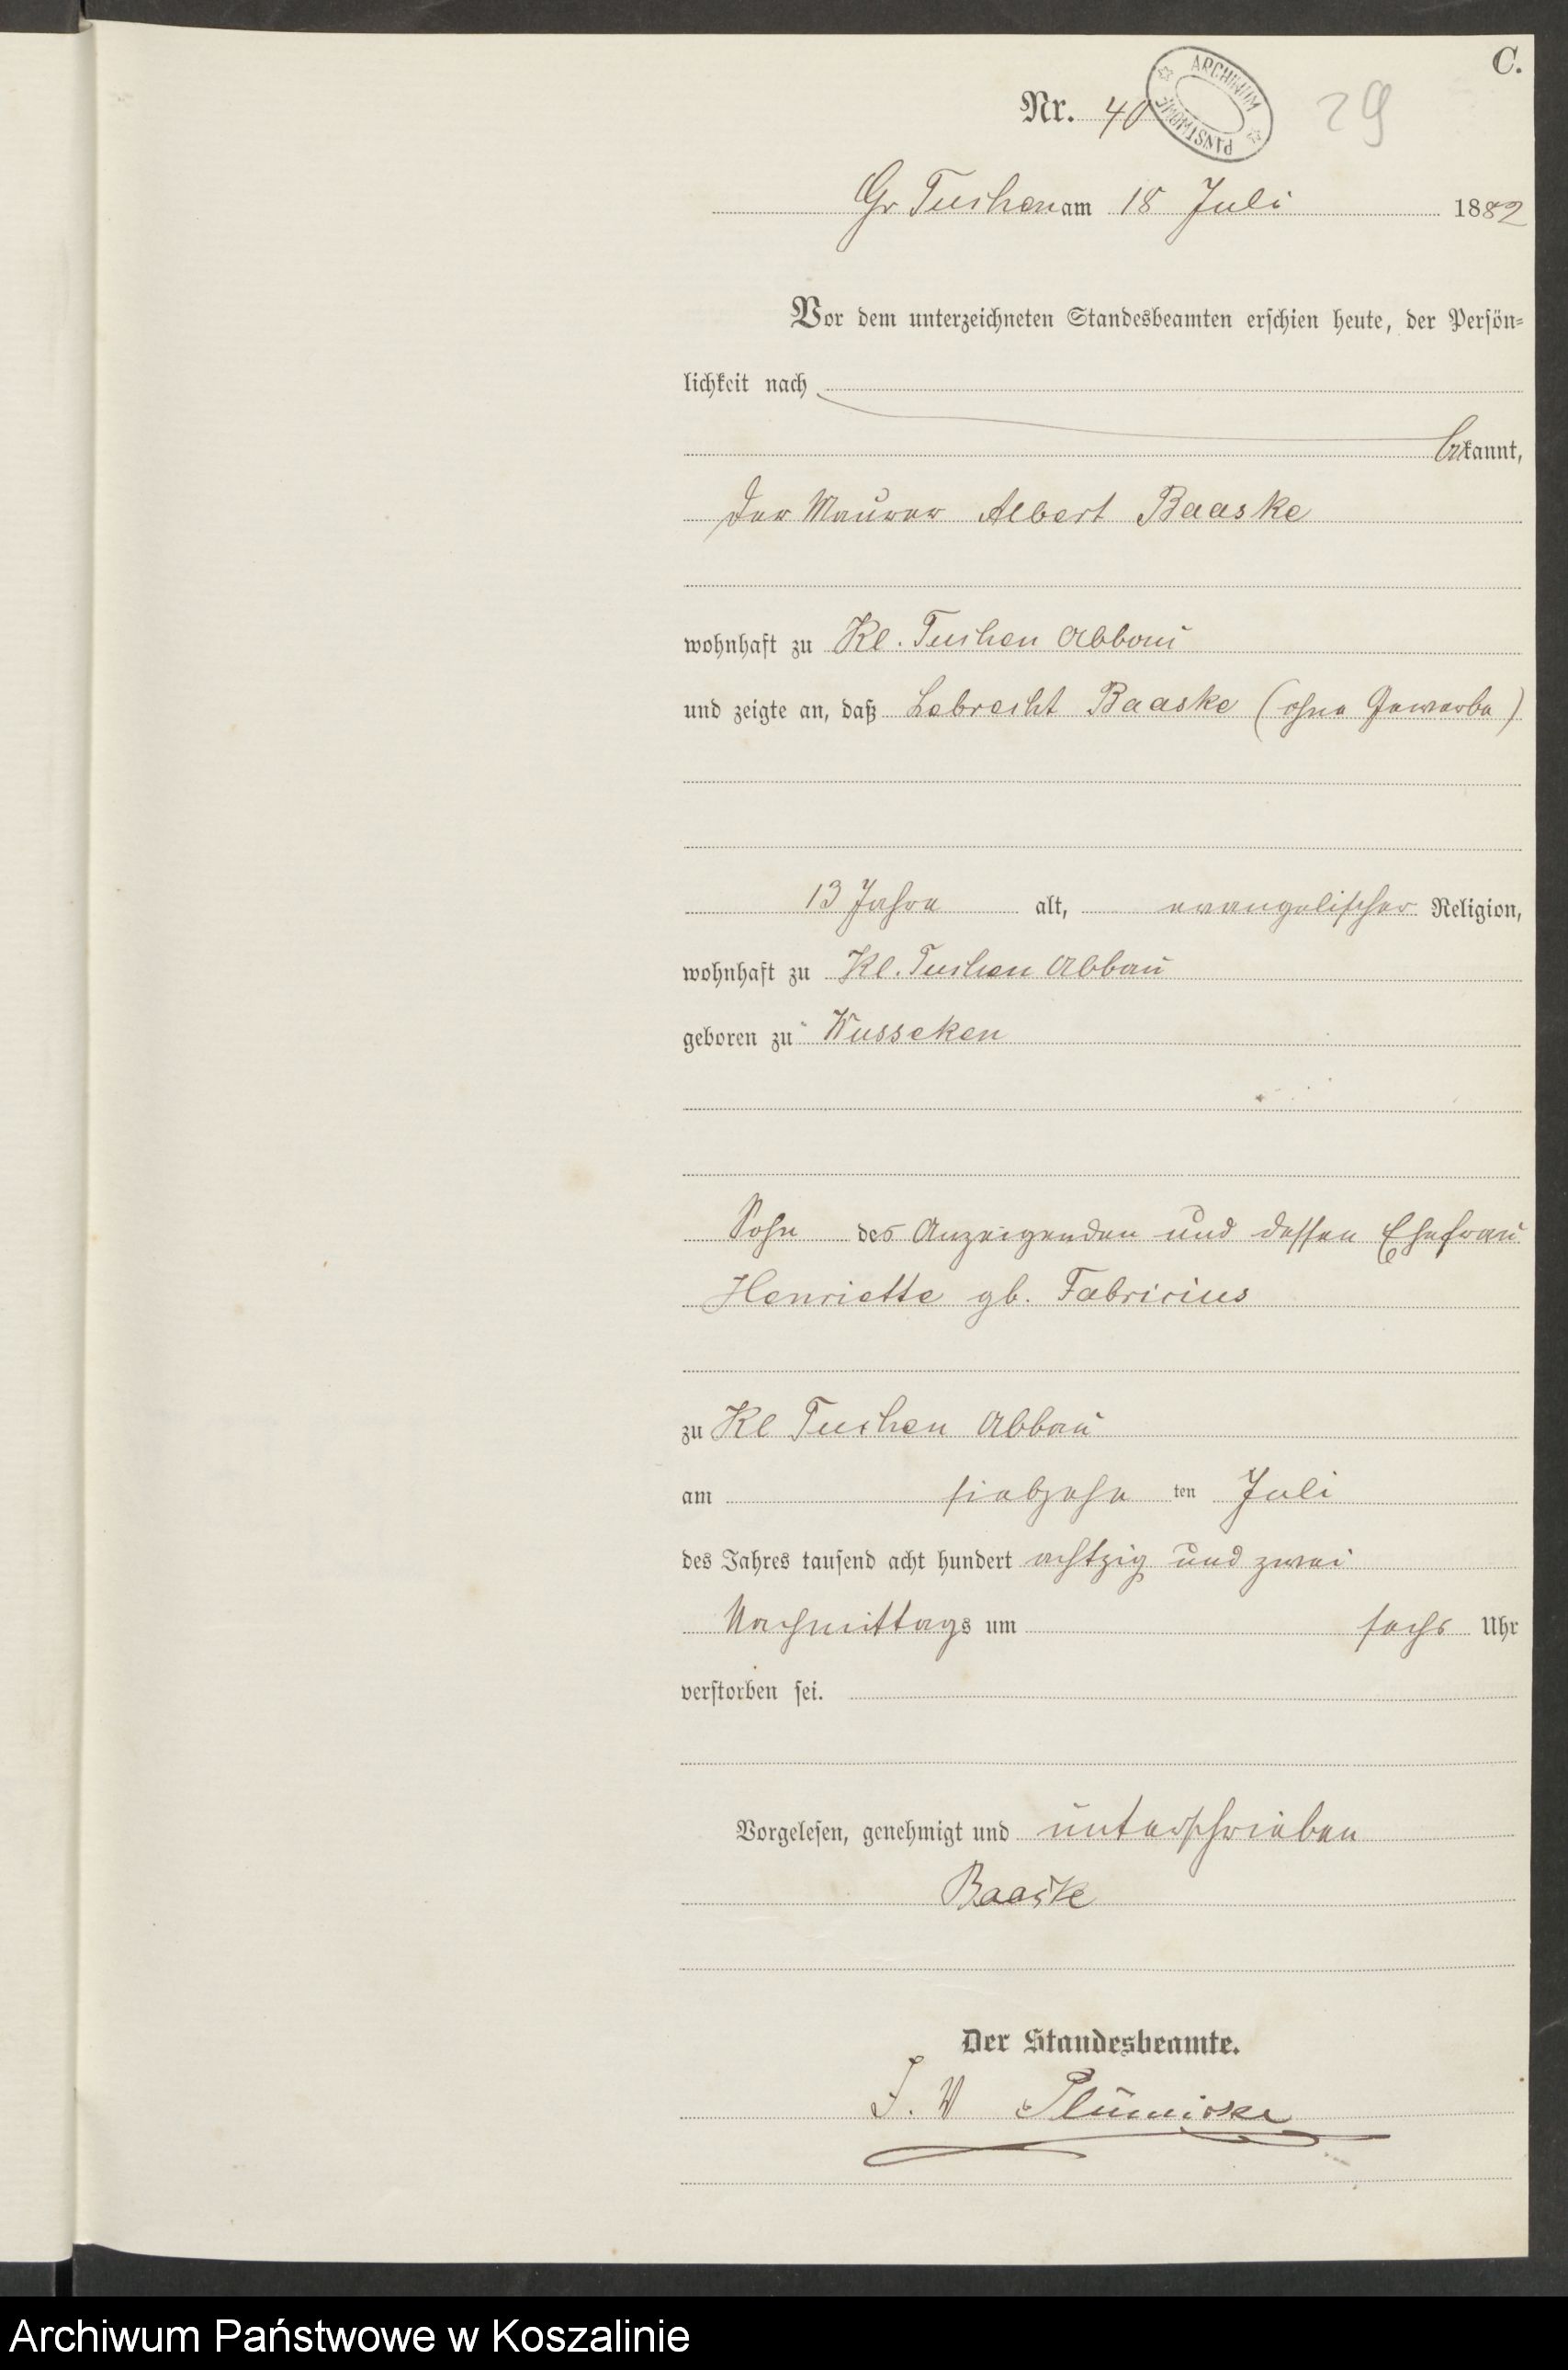 C.
Nr. 40
ARCHIWUM PAŃSTWOWE
29
Gr Tuchen am 18 Juli 1882
Vor dem unterzeichneten Standesbeamten erschien heute, der Persön-
lichkeit nach
bekannt,
der Maurer Albert Baaske
wohnhaft zu Kl. Tuchen Abbau
und zeigte an, daß Lebrecht Baaske (ohne Gewerbe)
13 Jahre alt, evangelischer Religion,
wohnhaft zu Kl. Tuchen Abbau
geboren zu Wusseken
Sohn des Anzeigenden und dessen Ehefrau
Henriette gb. Fabricius
zu Kl Tuchen Abbau
am siebzehn ten Juli
des Jahres tausend acht hundert achtzig und zwei
Nachmittags um sechs Uhr
verstorben sei.
Vorgelesen, genehmigt und unterschrieben
Baaske
Der Standesbeamte.
Archiwum Państwowe w Koszalinie